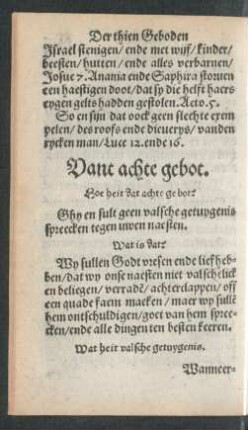 Der thien Geboden
Israel stenigen/ ende met wijf/ kinder/
beesten/ hutten/ ende alles verbarnen/
Josue 7. Anania ende Saphira storuen
een haestigen doot/ dat sy die helft haers
eygen gelts hadden gestolen. Acto. 5.
So en sijn dat oock geen slechte exem
pelen/ des roofs ende dieuerys/ vanden
rycken man/ Luce 12. ende 16.
Vant achte gebot.
Hoe heit dat achte gebot?
Ghy en sult geen valsche getuygenis
spreecken tegen uwen naesten.
Wat is dat?
Wy sullen Godt vresen ende lief heb-
ben/ dat wy onse naesten niet valschelick
en beliegen/ verradē/ achterclappen/ oft
een quade faem maeken/ maer wy sullē
hem ontschuldigen/ goet van hem spree-
cken/ ende alle dingen ten besten keeren.
Wat heit valsche getuygenis.
Wanneer-